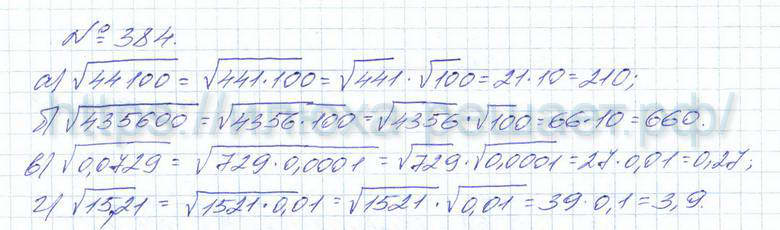 № 384.
а) √44100 = √441·100 = √441 · √100 = 21·10 = 210;
б) √435600 = √4356·100 = √4356 · √100 = 66·10 = 660.
в) √0,0729 = √729·0,0001 = √729 · √0,0001 = 27·0,01 = 0,27;
г) √15,21 = √1521·0,01 = √1521 · √0,01 = 39·0,1 = 3,9.